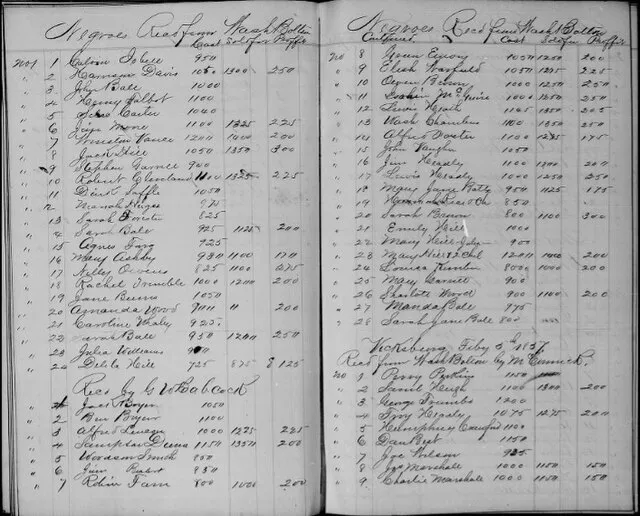 Negroes Recd from Wash Bolton
Cost Sold for Proffit
No 1 1 Calvin Isbell 950
" 2 Harrison Davis 1050 1300 250
" 3 John Bale 1000
" 4 Henry Talbot 1100
" 5 Carter 1040
" 6 Moore 1100 1325 225
" 7 Winston Vance 1200 1400 200
" 8 Jack Hill 1050 1350 300
" 9 Stephen Garnett 900
" 10 Robert Cleveland 1100 1325 225
" 11 1050
" 2 Mariah
" 13 Sarah 825
" 4 Sarah Bale 925 1125 200
" 15 Agnes 725
" 16 Mary Ashby 930 1100 170
" 17 Nelly Owens 825 1100 275
" 18 Rachel Trimble 1000 1200 200
" 19 Jane Burns 1050
" 20 Amanda Wood 900 11 200
" 21 Caroline Whaly 925
" 22 Sarah Bale 950 1200 250
" 23 Julia Williams
" 24 Delila Hill 725 875 125
Recd by G W Babcock
Jack Boyer 1050
" 2 Ben Bryer 1100
" 3 Alfred 1000 1225 225
" 4 Sampson Deens 1150 1350 200
" 5 Woodson Smith 850
" 6 Jim 850
" 7 Robin Farr 800 1000 200
Negroes Recd from Wash Bolton
Cost Sold for Proffit
No 8 Emory 1050 1250 200
" 9 Eliah Warfield 1050 1275 225
" 10 Owen Brown 1000 1250
" 11 McGuire 1000 1250 250
" 12 Lewis Heath 1145 1350 205
" 13 Wash Chambers 1100 1350 250
" 14 Alfred Dorster 1100 1275 175
" 15 John Vaughn 1050
" 16 Jim Hegaly 1100 1200
" 17 Lewis Hegaly 1000 1250 250
" 18 Mary Jane Batty 950 1125 175
" 19 Hannah 850
" 20 Sarah Brown 800 1100 300
" 21 Emily Hill 1000
" 22 Mary Hill 900
" 23 Mary Hill & 2 Chil 1200 1400 200
" 24 Louisa 800 1000 200
" 25 Mary Garnett 900
" 26 Sharlote Wood 900 1100 200
" 27 Manda Bale 775
" 28 Sarah Jane Bale 800
Vicksburg Feby 5th 1857
Recd from Wash Bolton by McCormick
No 1 Perry Perkins 1150
" 2 Saml Hugh 1100 1300 200
" 3 George Trumbo 1200
" 4 Tony Hegaly 1075 1275 200
" 5 Humphrey Crawford 1100
" 6 Dan Best 1150
" 7 Joe Wilson 925
" 8 Joe Marshall 1000 1150 150
" 9 Charlie Marshall 1000 1150 150